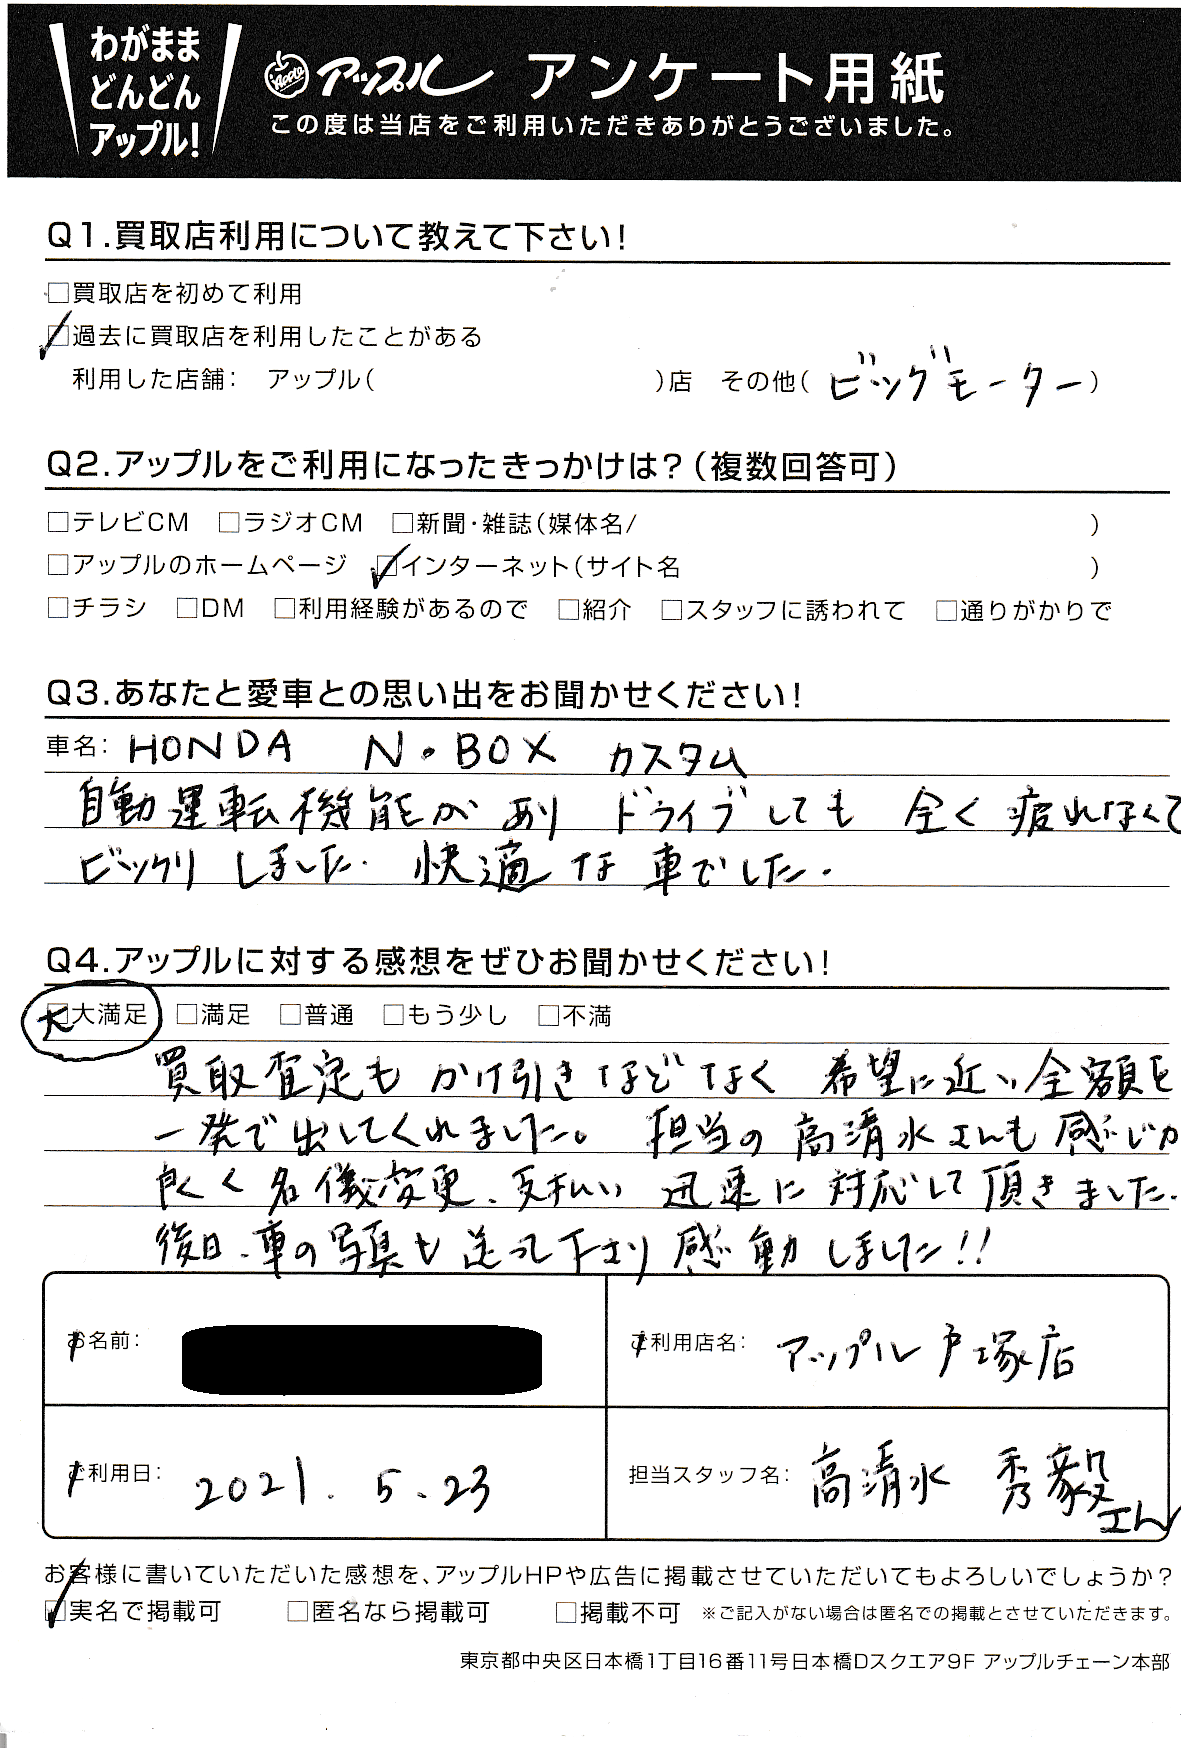 わがまま
どんどん
アップル!
Apple アップル アンケート用紙
この度は当店をご利用いただきありがとうございました。
Q1.買取店利用について教えて下さい!
□買取店を初めて利用
☑過去に買取店を利用したことがある
利用した店舗: アップル( )店 その他( ビッグモーター )
Q2.アップルをご利用になったきっかけは?(複数回答可)
□テレビCM □ラジオCM □新聞・雑誌(媒体名/ )
□アップルのホームページ ☑インターネット(サイト名 )
□チラシ □DM □利用経験があるので □紹介 □スタッフに誘われて □通りがかりで
Q3.あなたと愛車との思い出をお聞かせください!
車名: HONDA N・BOX カスタム
自動運転機能があり ドライブしても 全く疲れなくて
ビックリしました. 快適な車でした.
Q4.アップルに対する感想をぜひお聞かせください!
☑大満足 □満足 □普通 □もう少し □不満
買取査定もかけ引きなどなく 希望に近い金額を
一発で出してくれました。担当の高清水さんも感じが
良く名儀変更、支払い 迅速に対応して頂きました.
後日、車の写真も送って下さり感動しました!!
お名前:
ご利用店名: アップル戸塚店
ご利用日: 2021.5.23
担当スタッフ名: 高清水 秀毅さん
お客様に書いていただいた感想を、アップルHPや広告に掲載させていただいてもよろしいでしょうか?
☑実名で掲載可 □匿名なら掲載可 □掲載不可 ※ご記入がない場合は匿名での掲載とさせていただきます。
東京都中央区日本橋1丁目16番11号日本橋Dスクエア9F アップルチェーン本部